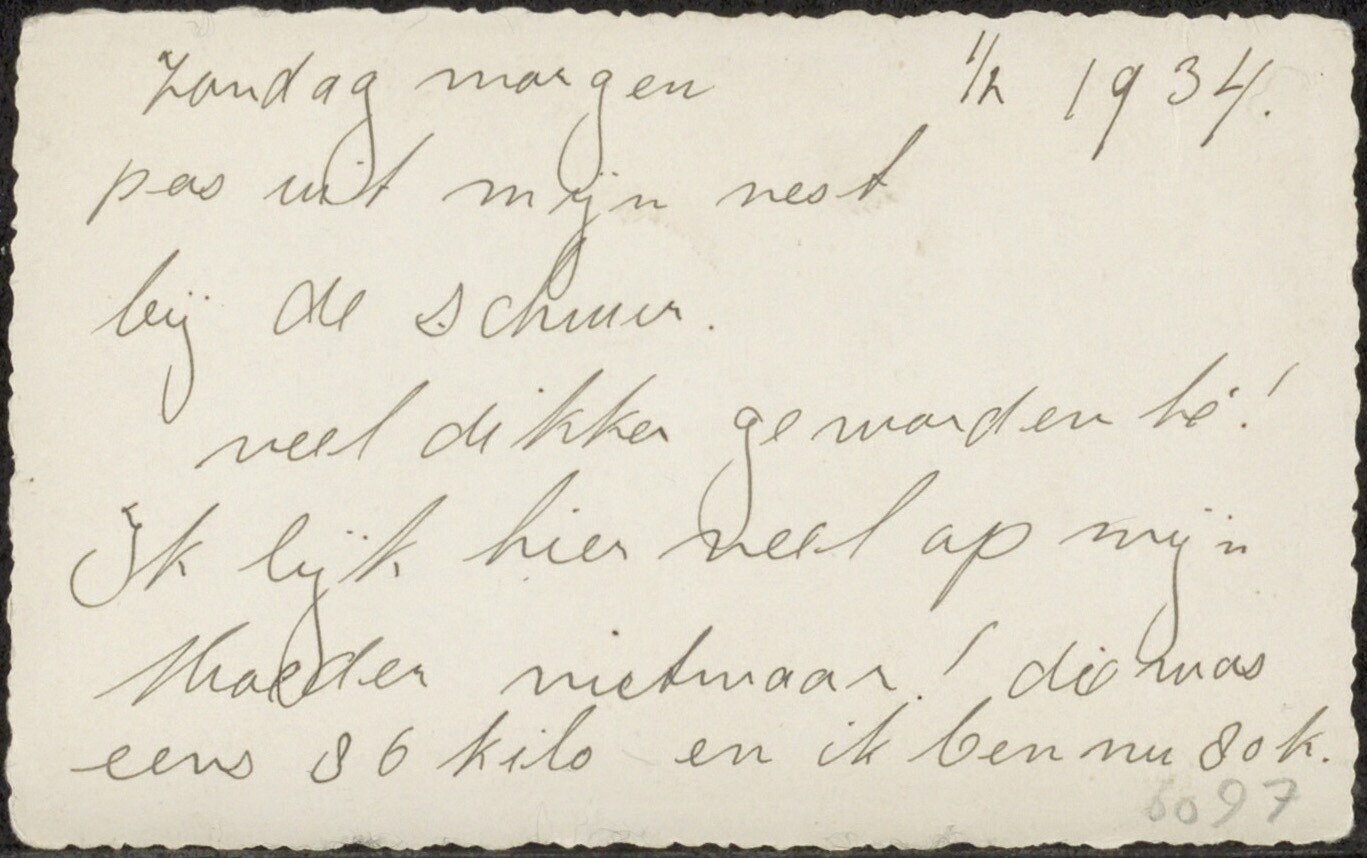 Zondag morgen 1/2 1934.
pas uit mijn nest
bij de schuur.
veel dikker geworden hè!
Ik lijk hier veel op mijn
Moeder nietwaar! die was
eens 86 kilo en ik ben nu 80 k.
6097